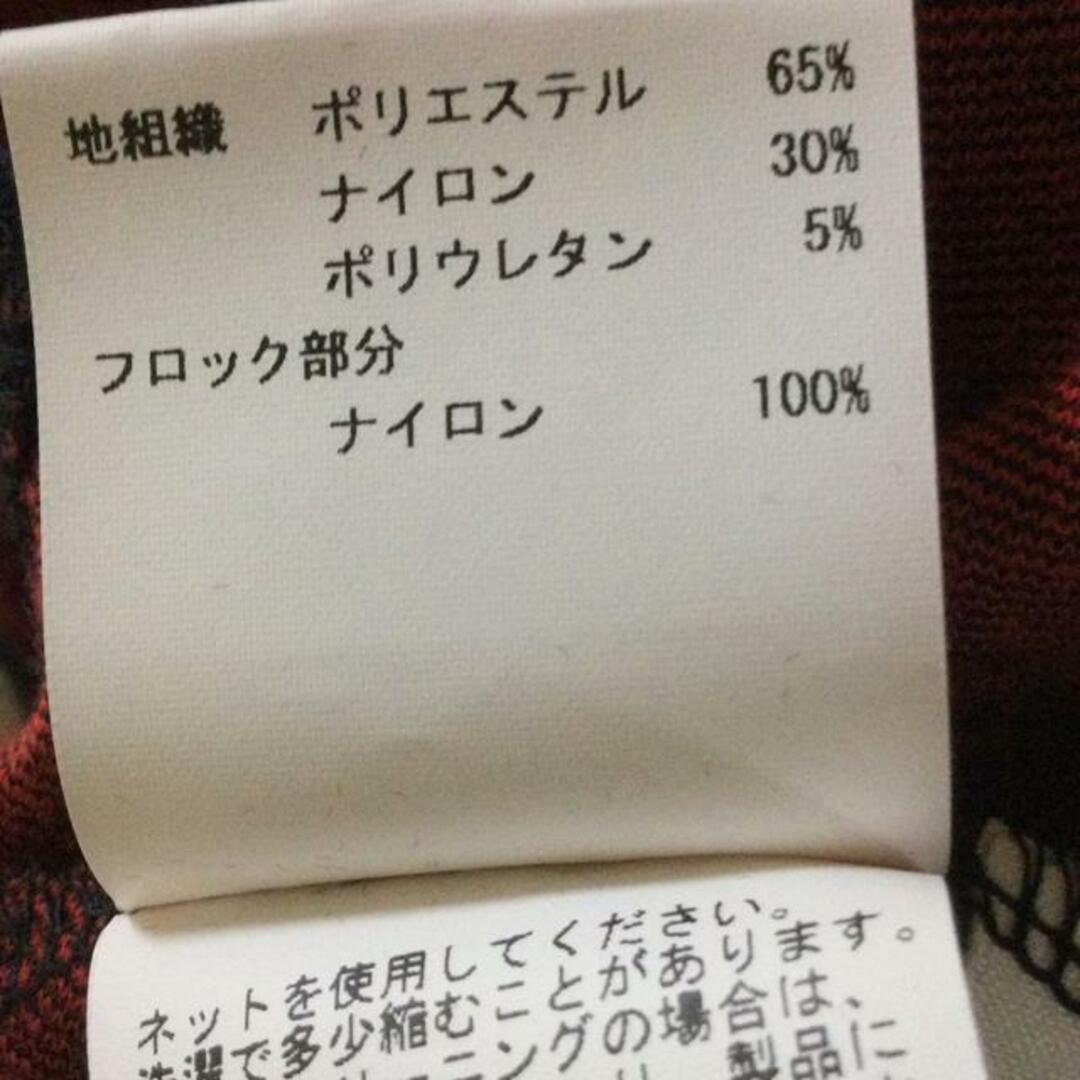 地組織 ポリエステル 65%
ナイロン 30%
ポリウレタン 5%
フロック部分
ナイロン 100%
ネットを使用してください。
洗濯で多少縮むことがあります。
ニングの場合は、
製品に